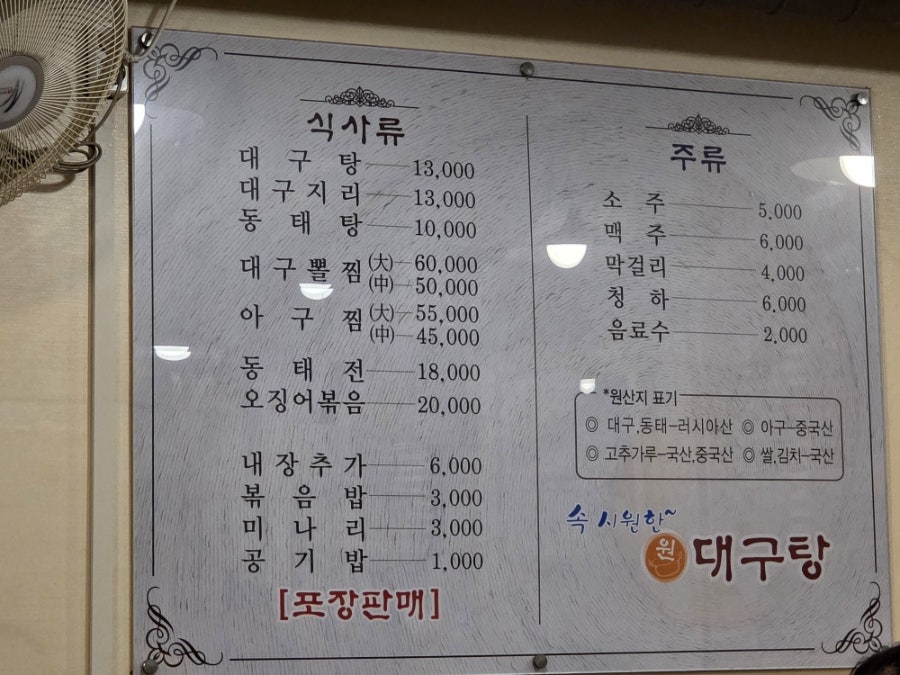 식사류
대구탕 13,000
대구지리 13,000
동태탕 10,000
대구뽈찜 (大) 60,000
(中) 50,000
아구찜 (大) 55,000
(中) 45,000
동태전 18,000
오징어볶음 20,000
내장추가 6,000
볶음밥 3,000
미나리 3,000
공기밥 1,000
[포장판매]
주류
소주 5,000
맥주 6,000
막걸리 4,000
청하 6,000
음료수 2,000
*원산지 표기
◎ 대구,동태-러시아산 ◎ 아구-중국산
◎ 고추가루-국산,중국산 ◎ 쌀,김치-국산
속 시원한~
원 대구탕